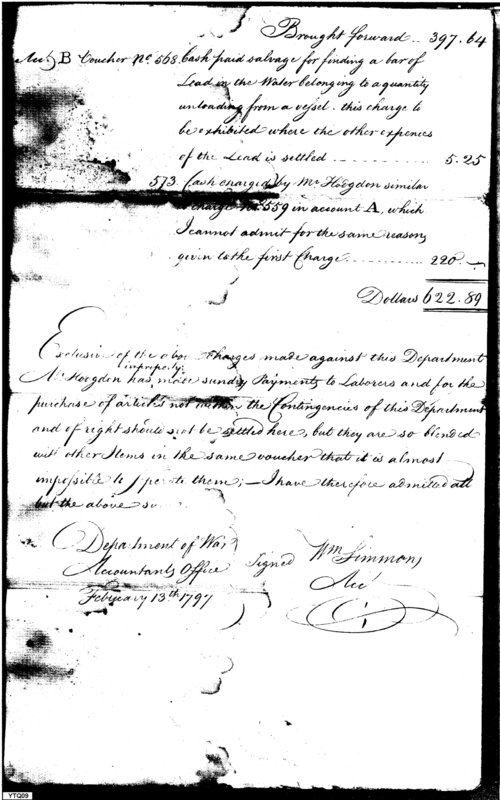 Brought forward .. 397.64
Acct B Voucher No. 568. Cash paid salvage for finding a bar of
Lead in the Water belonging to a quantity
unloading from a vessel. this charge to
be exhibited where the other expences
of the Lead is settled ........... 5.25
573. Cash charged by Mr Hodgdon similar
a charge No. 559 in account A, which
I cannot admit for the same reasons
given to the first Charge ........... 220.—
Dollars 622.89
Exclusive of the above Charges made against this Department
improperly
Mr Hodgdon has made sundry Payments to Laborers and for the
purchase of articles not within the Contingencies of this Department
and of right should not be settled here, but they are so blended
with other Items in the same voucher that it is almost
impossible to seperate them; — I have therefore admitted all
but the above
Department of War
Accountants Office
Signed Wm Simmons
Acct
February 13th 1797
YTQ09